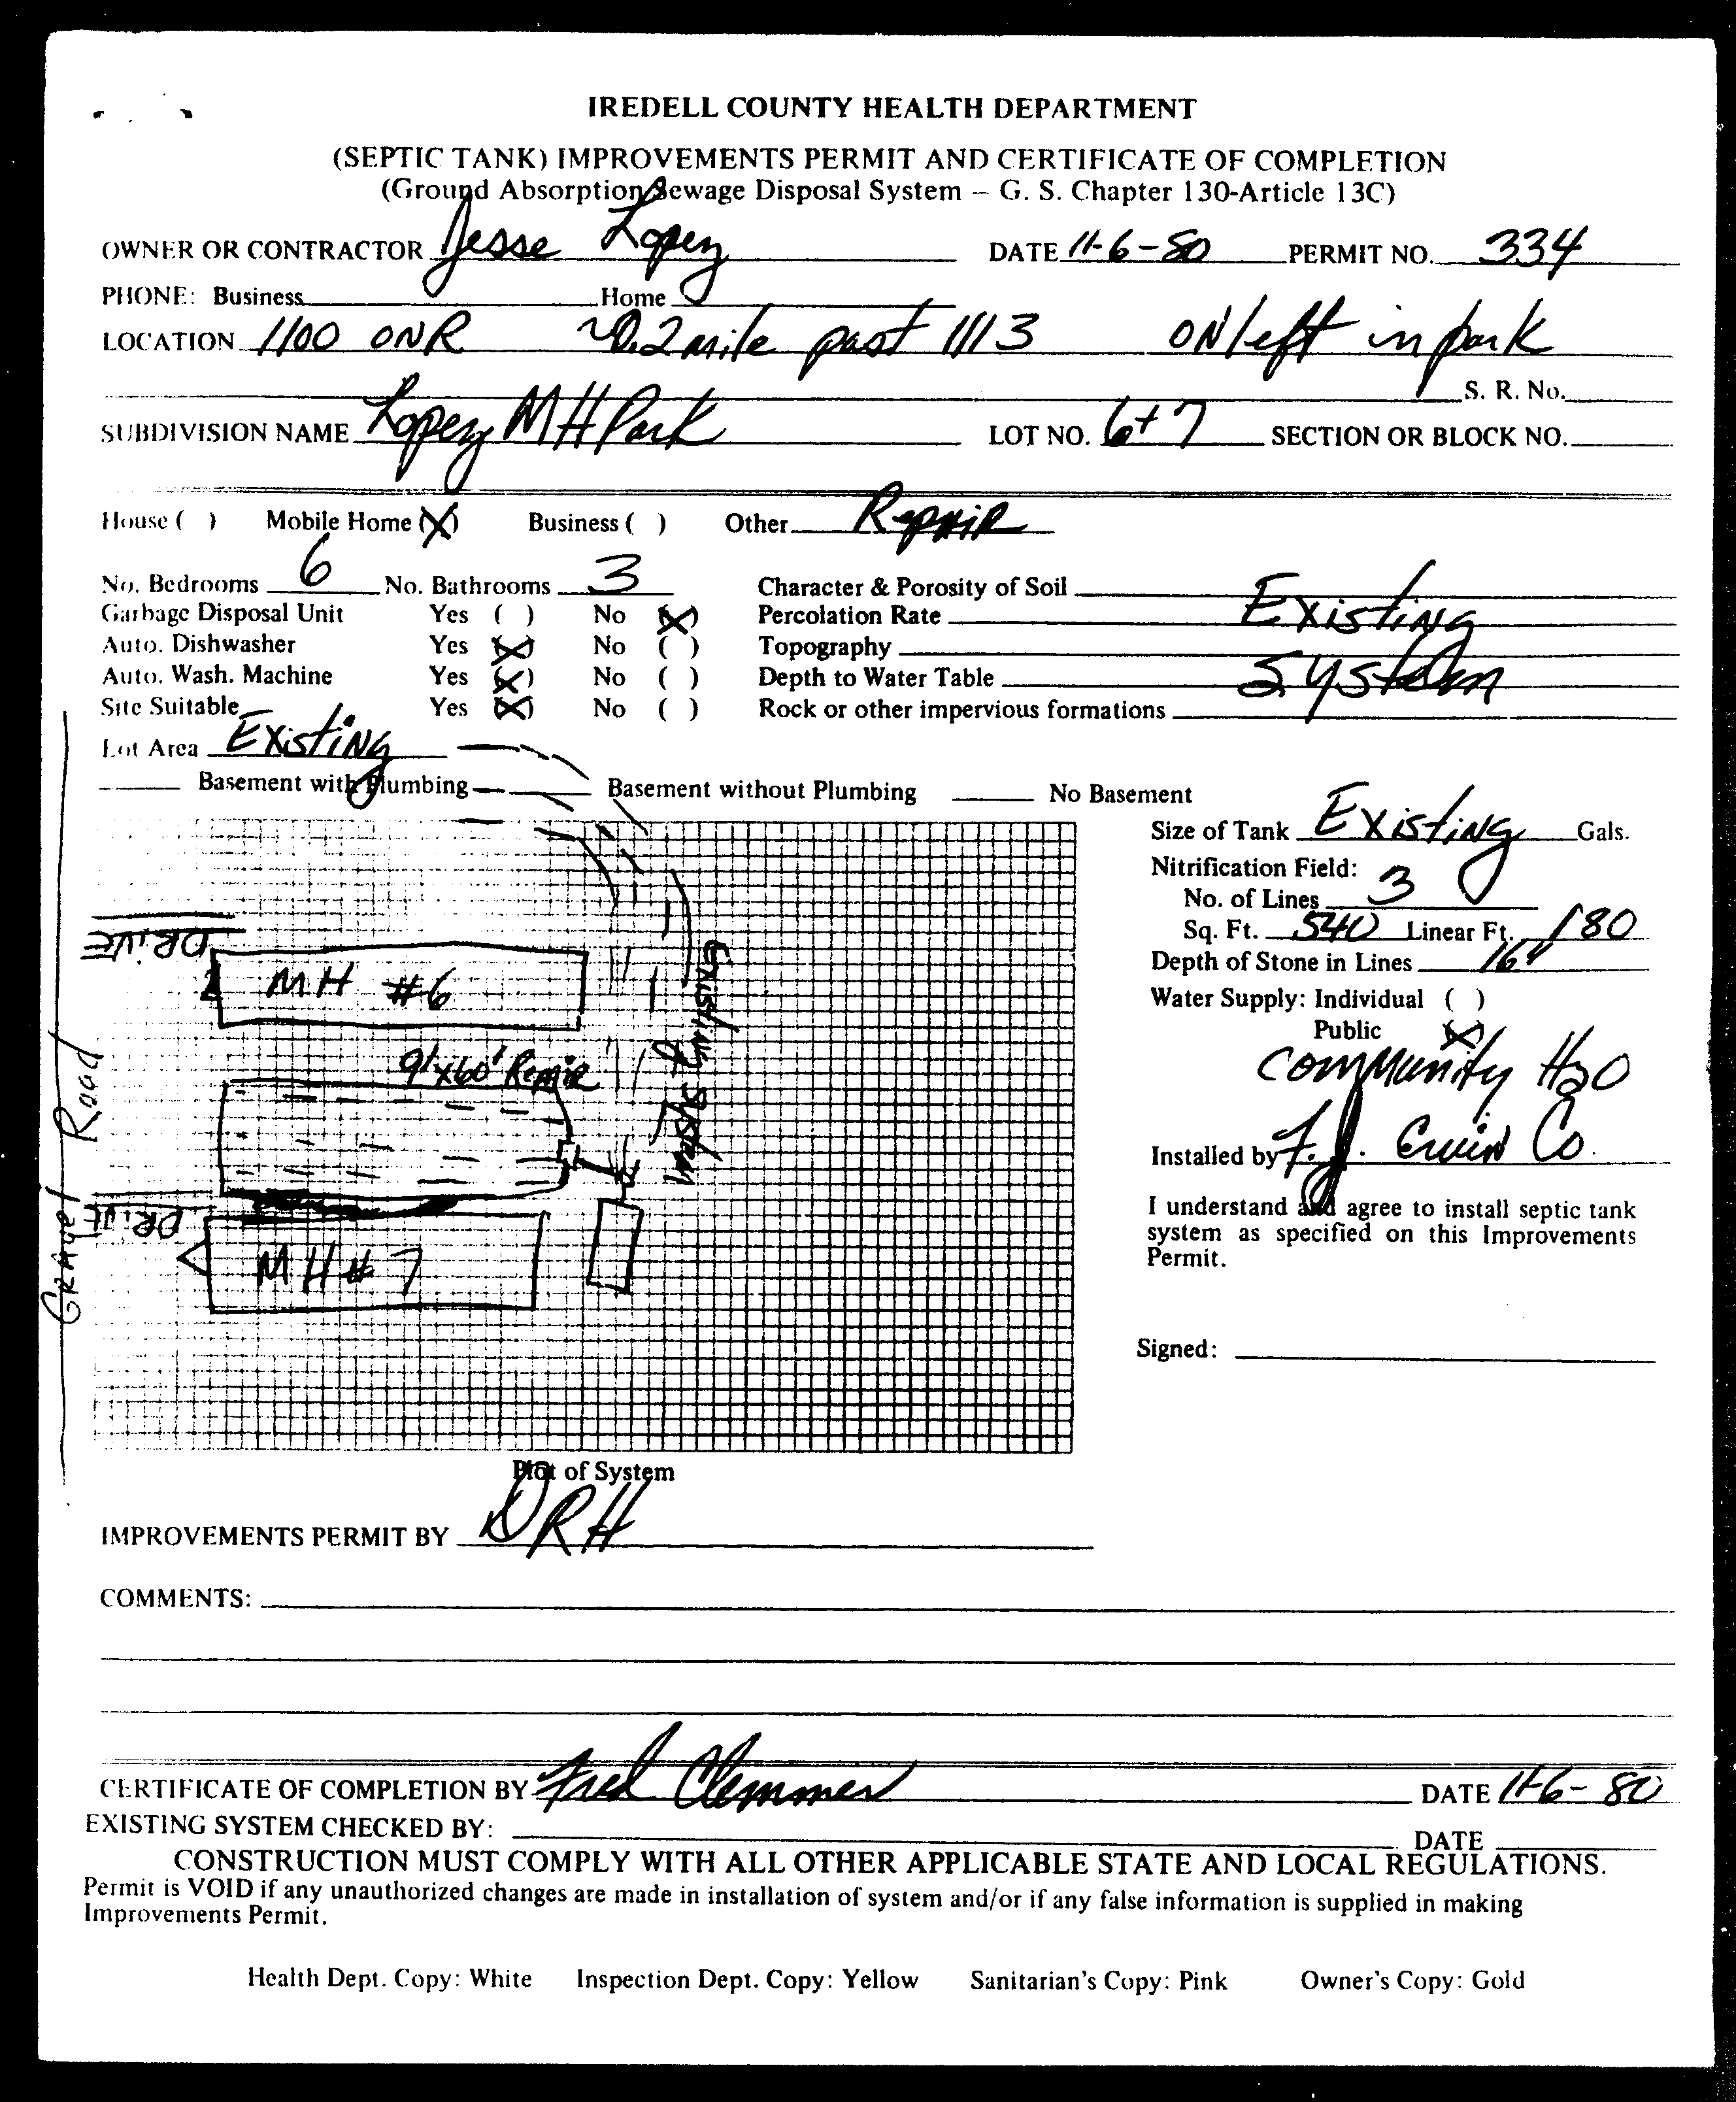 IREDELL COUNTY HEALTH DEPARTMENT
(SEPTIC TANK) IMPROVEMENTS PERMIT AND CERTIFICATE OF COMPLETION
(Ground Absorption Sewage Disposal System – G. S. Chapter 130-Article 13C)
OWNER OR CONTRACTOR Jesse Lopez DATE 11-6-80 PERMIT NO. 334
PHONE: Business Home
LOCATION 1100 ON R ~0.2 mile past 1113 ON left in park
S. R. No.
SUBDIVISION NAME Lopez MH Park LOT NO. 6+7 SECTION OR BLOCK NO.
House ( ) Mobile Home (X) Business ( ) Other Repair
No. Bedrooms 6 No. Bathrooms 3 Character & Porosity of Soil
Garbage Disposal Unit Yes ( ) No (X) Percolation Rate Existing
Auto. Dishwasher Yes (X) No ( ) Topography
Auto. Wash. Machine Yes (X) No ( ) Depth to Water Table System
Site Suitable Yes (X) No ( ) Rock or other impervious formations
Lot Area Existing
Basement with Plumbing Basement without Plumbing No Basement
Size of Tank Existing Gals.
Nitrification Field:
No. of Lines 3
Sq. Ft. 540 Linear Ft. 180
Depth of Stone in Lines 16"
Water Supply: Individual ( )
Public (X)
Community H2O
Installed by F. J. Ervin Co.
I understand and agree to install septic tank
system as specified on this Improvements
Permit.
Signed:
DRIVE
MH #6
Existing System
9'x60' Repair
Gravel Road
DRIVE
MH #7
Plot of System
IMPROVEMENTS PERMIT BY DRH
COMMENTS:
CERTIFICATE OF COMPLETION BY Fred Clemmer DATE 11-6-80
EXISTING SYSTEM CHECKED BY: DATE
CONSTRUCTION MUST COMPLY WITH ALL OTHER APPLICABLE STATE AND LOCAL REGULATIONS.
Permit is VOID if any unauthorized changes are made in installation of system and/or if any false information is supplied in making
Improvements Permit.
Health Dept. Copy: White Inspection Dept. Copy: Yellow Sanitarian's Copy: Pink Owner's Copy: Gold